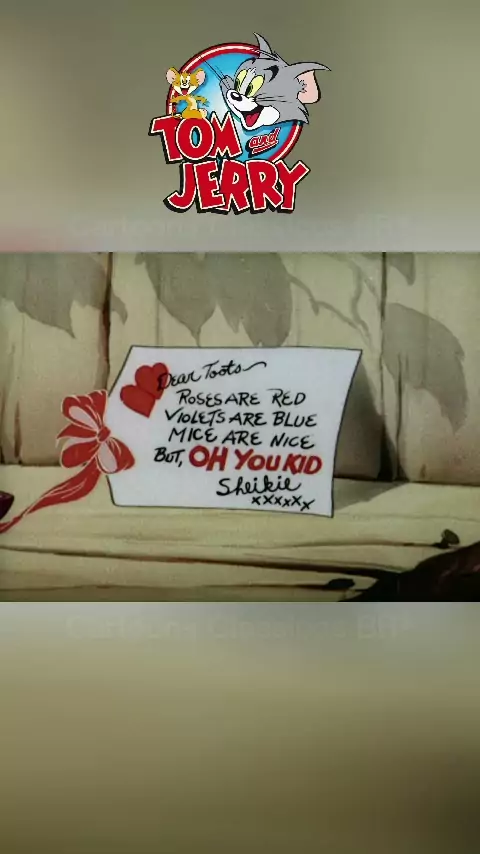 TOM and
JERRY
Dear Toots
ROSES ARE RED
VIOLETS ARE BLUE
MICE ARE NICE
BUT, OH YOU KID
Sheikie
xxxxxx